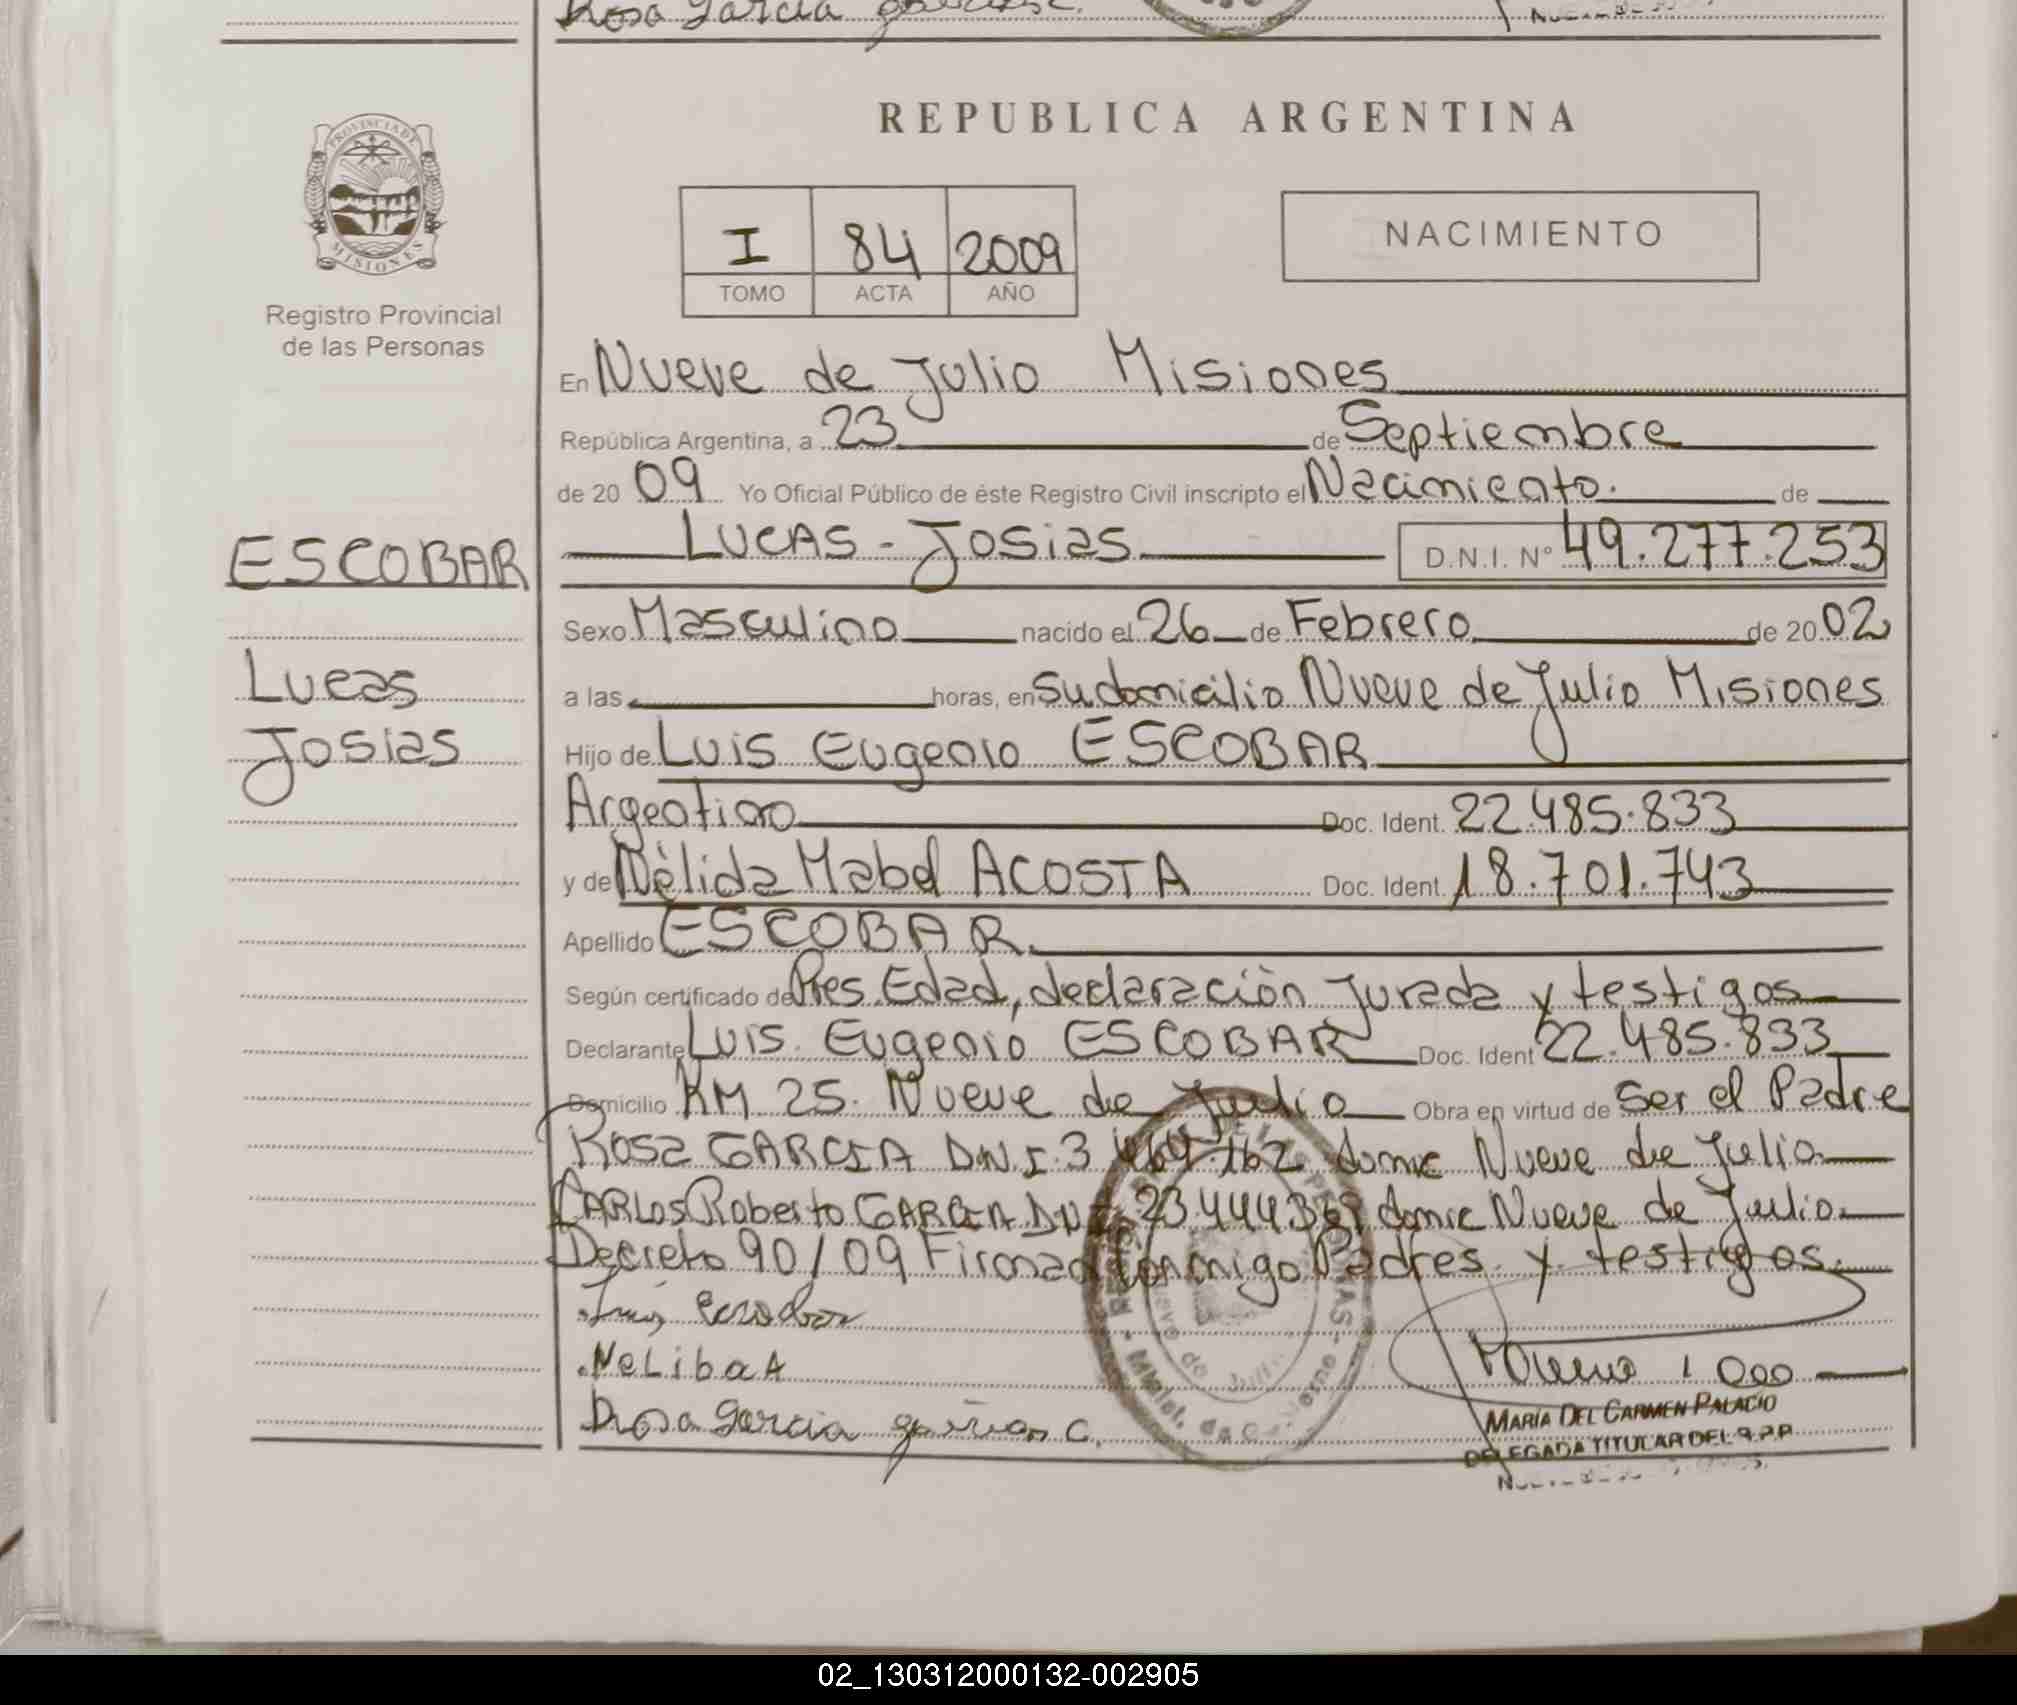 Rosa Garcia
REPUBLICA ARGENTINA
PROVINCIA DE
MISIONES
Registro Provincial
de las Personas
I 84 2009
TOMO ACTA AÑO
NACIMIENTO
En Nueve de Julio Misiones
República Argentina, a 23 de Septiembre
de 20 09 Yo Oficial Público de éste Registro Civil inscripto el Nacimiento. de
ESCOBAR
Lucas
Josias
LUCAS - Josias D.N.I. Nº 49.277.253
Sexo Masculino nacido el 26 de Febrero de 20 02
a las horas, en su domicilio Nueve de Julio Misiones
Hijo de Luis Eugenio ESCOBAR
Argentino Doc. Ident. 22.485.833
y de Nélida Mabel ACOSTA Doc. Ident. 18.701.743
Apellido ESCOBAR
Según certificado de Pres. Edad, declaración Jurada y testigos
Declarante Luis Eugenio ESCOBAR Doc. Ident 22.485.833
Domicilio KM 25. Nueve de Julio Obra en virtud de ser el Padre
Rosa GARCIA D.N.I. 3 domic Nueve de Julio
CARLOS Roberto GARCIA DNI domic Nueve de Julio
Decreto 90/09 Firman conmigo Padres y testigos.
Luis Escobar
NeLiba A
Rosa Garcia
MARÍA DEL CARMEN PALACIO
DELEGADA TITULAR DEL R.P.P.
02_130312000132-002905